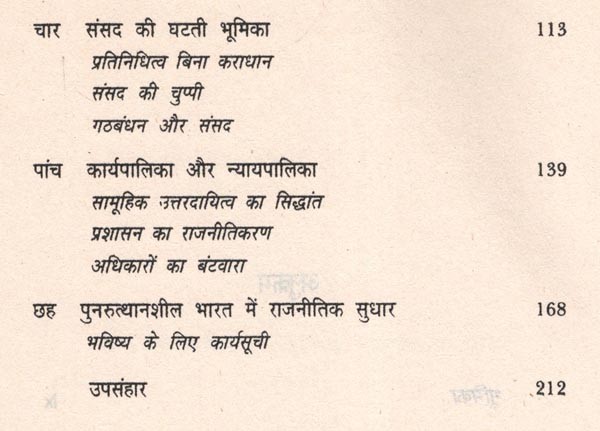 चार संसद की घटती भूमिका 113
प्रतिनिधित्व बिना कराधान
संसद की चुप्पी
गठबंधन और संसद
पांच कार्यपालिका और न्यायपालिका 139
सामूहिक उत्तरदायित्व का सिद्धांत
प्रशासन का राजनीतिकरण
अधिकारों का बंटवारा
छह पुनरुत्थानशील भारत में राजनीतिक सुधार 168
भविष्य के लिए कार्यसूची
उपसंहार 212